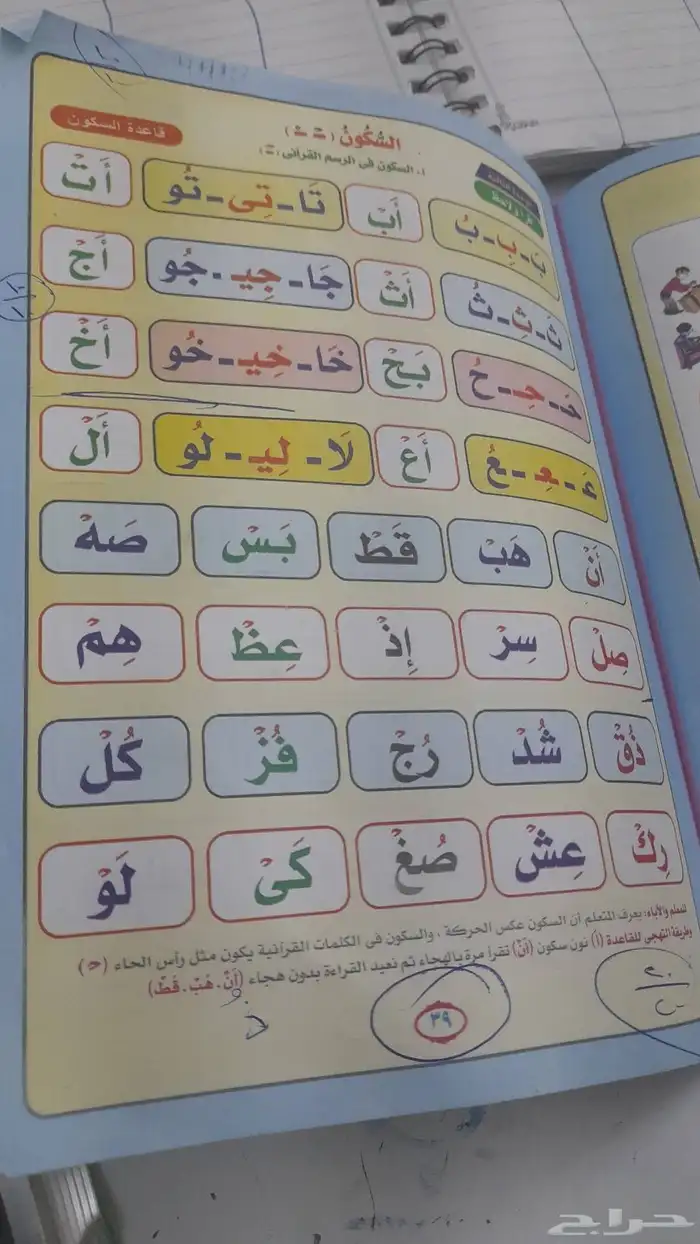 السُّكُونُ ( ـْـ ـْـ )
قاعدة السكون
١. السكون فى الرسم القرآنى (ـْـ)
بَ - بِ - بُ أَبْ تَا - تِى - تُو أَتْ
ثَ - ثِ - ثُ أَثْ جَا - جِيـ - جُو أَجْ
حَـ - حِـ - حُ بَحْ خَا - خِيـ - خُو أَخْ
عَ - عِـ - عُ أَعْ لَا - لِيـ - لُو أَلْ
أَنْ هَبْ قَطْ بَسْ صَهْ
صِلْ سِرْ إِذْ عِظْ هِمْ
ذُقْ شُدْ رُجْ فُزْ كُلْ
رِكْ عِشْ صُغْ كَىْ لَوْ
للمعلم والآباء: يعرف المتعلم أن السكون عكس الحركة ، والسكون فى الكلمات القرآنية يكون مثل رأس الحاء (حـ)
وطريقة التهجى للقاعدة (أَ) نون سكون (أَنْ) تقرأ مرة بالهجاء ثم نعيد القراءة بدون هجاء (أَنْ. هَبْ. قَطْ)
٣٩
٢٠
حراج